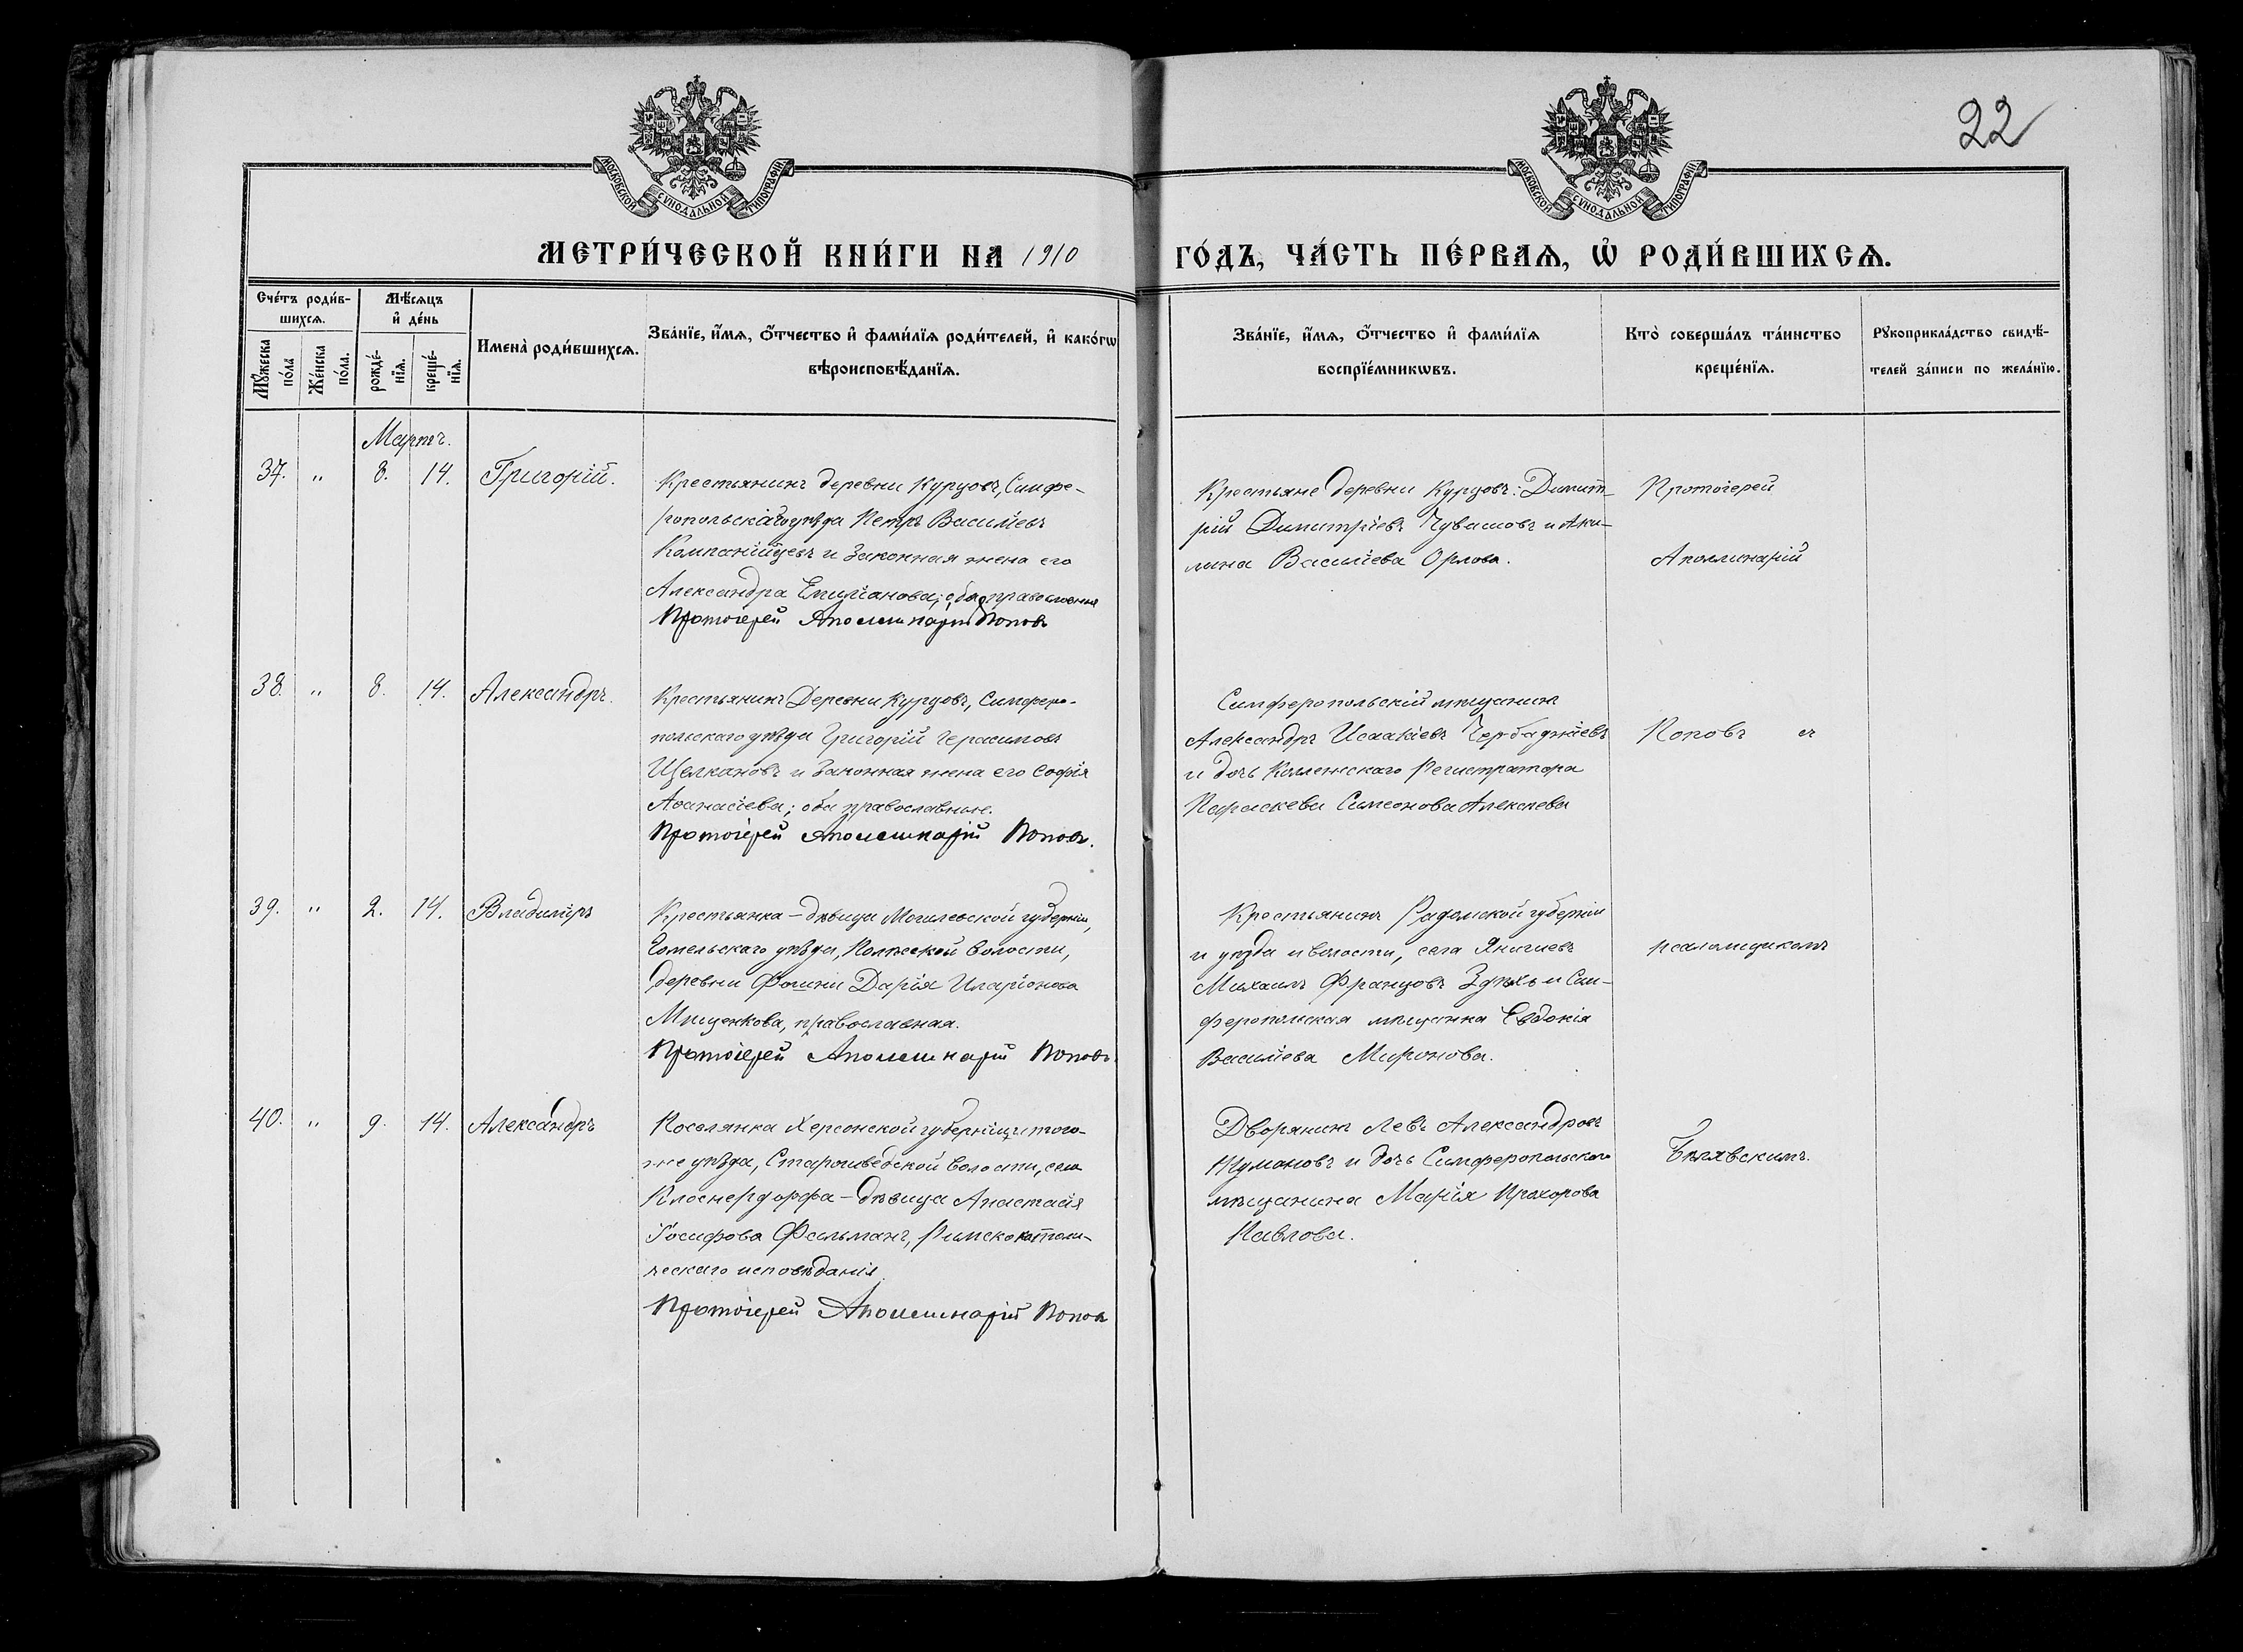 22
МОСКОВСКОЙ СѴНОДАЛЬНОЙ ТИПОГРАФІИ
МОСКОВСКОЙ СѴНОДАЛЬНОЙ ТИПОГРАФІИ
МЕТРИ́ЧЕСКОЙ КНИ́ГИ НА 1910 ГО́ДЪ, ЧА́СТЬ ПЕ́РВАѦ, Ѡ҆ РОДИ́ВШИХСѦ.
Сче́тъ роди́в-
шихсѧ.
Мꙋ́жеска
по́ла
Же́нска
по́ла.
Мѣ́сѧцъ
и҆ де́нь
рожде́-
нїѧ.
креще́-
нїѧ.
Имена̀ роди́вшихсѧ.
Зва́нїе, и҆́мѧ, ѻ҆́тчество и҆ фами́лїѧ роди́телей, и҆ како́гѡ
вѣроисповѣ́данїѧ.
Зва́нїе, и҆́мѧ, ѻ҆́тчество и҆ фами́лїѧ
воспрїе́мникѡвъ.
Кто̀ соверша́лъ та́инство
креще́нїѧ.
Рꙋкоприкла́дство свидѣ́-
телей за́писи по жела́нїю.
Мартъ.
37. " 8. 14. Григорій.
Крестьянинъ деревни Курцовъ, Симфе-
ропольскаго уѣзда Петръ Василіевъ
Компанійцевъ и законная жена его
Александра Епифанова; оба православные
Протоіерей Аполлинарій Поповъ
Крестьяне деревни Курцовъ: Димит-
рій Димитріевъ Чувашовъ и Аки-
лина Василіева Орлова.
Протоіерей
Аполлинарій
38. " 8. 14. Александръ.
Крестьянинъ деревни Курцовъ, Симферо-
польскаго уѣзда Григорій Герасимовъ
Щелкановъ и законная жена его Софія
Аѳанасіева; оба православные.
Протоіерей Аполлинарій Поповъ.
Симферопольскій мѣщанинъ
Александръ Исаакіевъ Чербаджіевъ
и дочь Коллежскаго Регистратора
Параскева Симеонова Алексѣева
Поповъ съ
39. " 2. 14. Владиміръ
Крестьянка - дѣвица Могилевской губерніи,
Гомельскаго уѣзда, волости,
деревни Дарія Иларіонова
Мищенкова, православная.
Протоіерей Аполлинарій Поповъ.
Крестьянинъ Радомской губерніи
и уѣзда и волости, села
Михаилъ Францовъ и Сим-
феропольская мѣщанка Евдокія
Василіева Миронова.
псаломщикомъ
40. " 9. 14. Александръ
Поселянка Херсонской губерніи, того-
же уѣзда, Старошведской волости, села
Клостердорфа - дѣвица Анастасія
Іосифова Фельманъ, Римско католи-
ческаго исповѣданія.
Протоіерей Аполлинарій Поповъ
Дворянинъ Левъ Александровъ
и дочь Симферопольскаго
мѣщанина Марія Прохорова
Павлова.
Бѣлявскимъ.